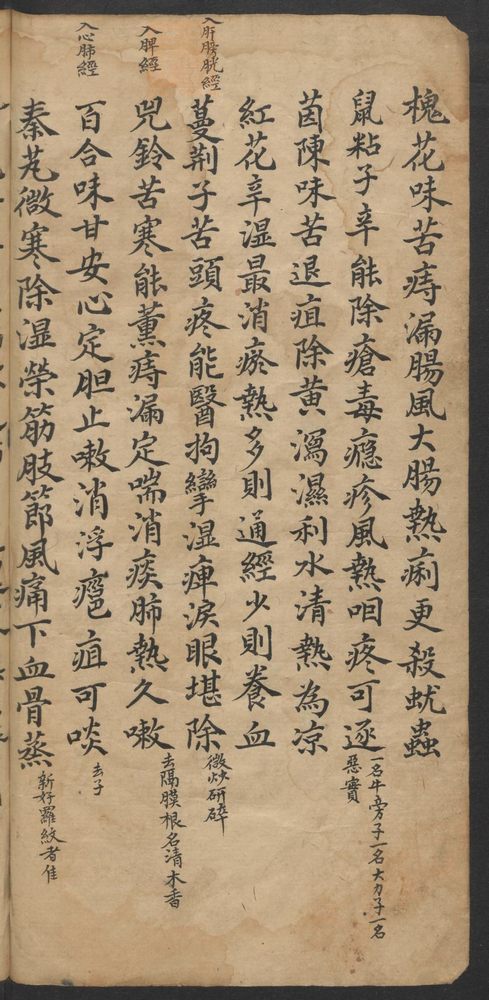 槐花味苦痔漏腸風大腸熱痢更殺蚘蟲
鼠粘子辛能除瘡毒癮疹風熱咽疼可逐
一名牛旁子一名大力子一名
惡實
茵陳味苦退疸除黃瀉濕利水清熱為凉
紅花辛湿最消瘀熱多則通經少則養血
入肝膀胱經
蔓荆子苦頭疼能醫拘攣湿痺淚眼堪除
微炒研碎
入脾經
兜鈴苦寒能薰痔漏定喘消痰肺熱久嗽
去隔膜根名清木香
入心肺經
百合味甘安心定胆止嗽消浮癰疽可啖
去子
秦艽微寒除湿榮筋肢節風痛下血骨蒸
新好羅紋者佳